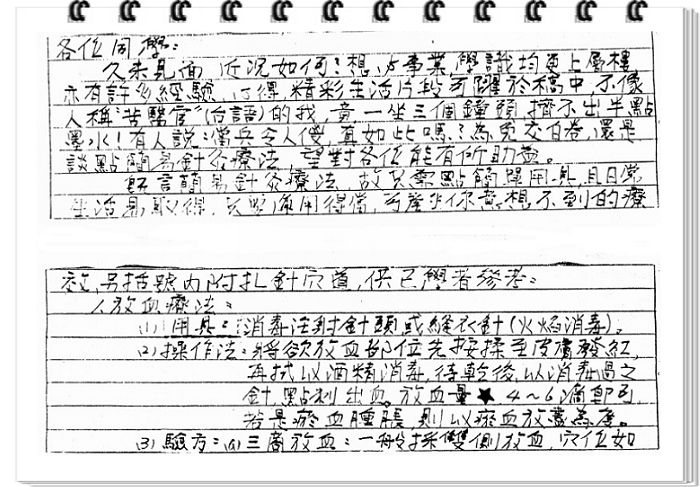 各位同學：
久未見面 近況如何？想必事業、學識均更上層樓
亦有許多經驗、心得、精彩生活片段可躍於稿中。不像
人稱"苦醫官"(台語)的我，竟一坐三個鐘頭，擠不出半點
墨水！有人說：當兵令人傻，真如此嗎？為免交白卷，還是
談點簡易針灸療法，望對各位能有所助益。
既言簡易針灸療法，故只需點簡單用具，且日常
生活易取得，只要運用得當，可產生你意想不到的療
效，另括號內附扎針穴道，供已學者參考：
1. 放血療法：
(1) 用具：消毒注射針頭或縫衣針(火焰消毒)。
(2) 操作法：將欲放血部位先按揉至皮膚發紅，
再拭以酒精消毒，待乾後，以消毒過之
針，點刺出血。放血量★4～6滴即可
若是瘀血腫脹，則以瘀血放盡為度。
(3) 驗方：(a) 三商放血：一般採雙側放血，穴位如